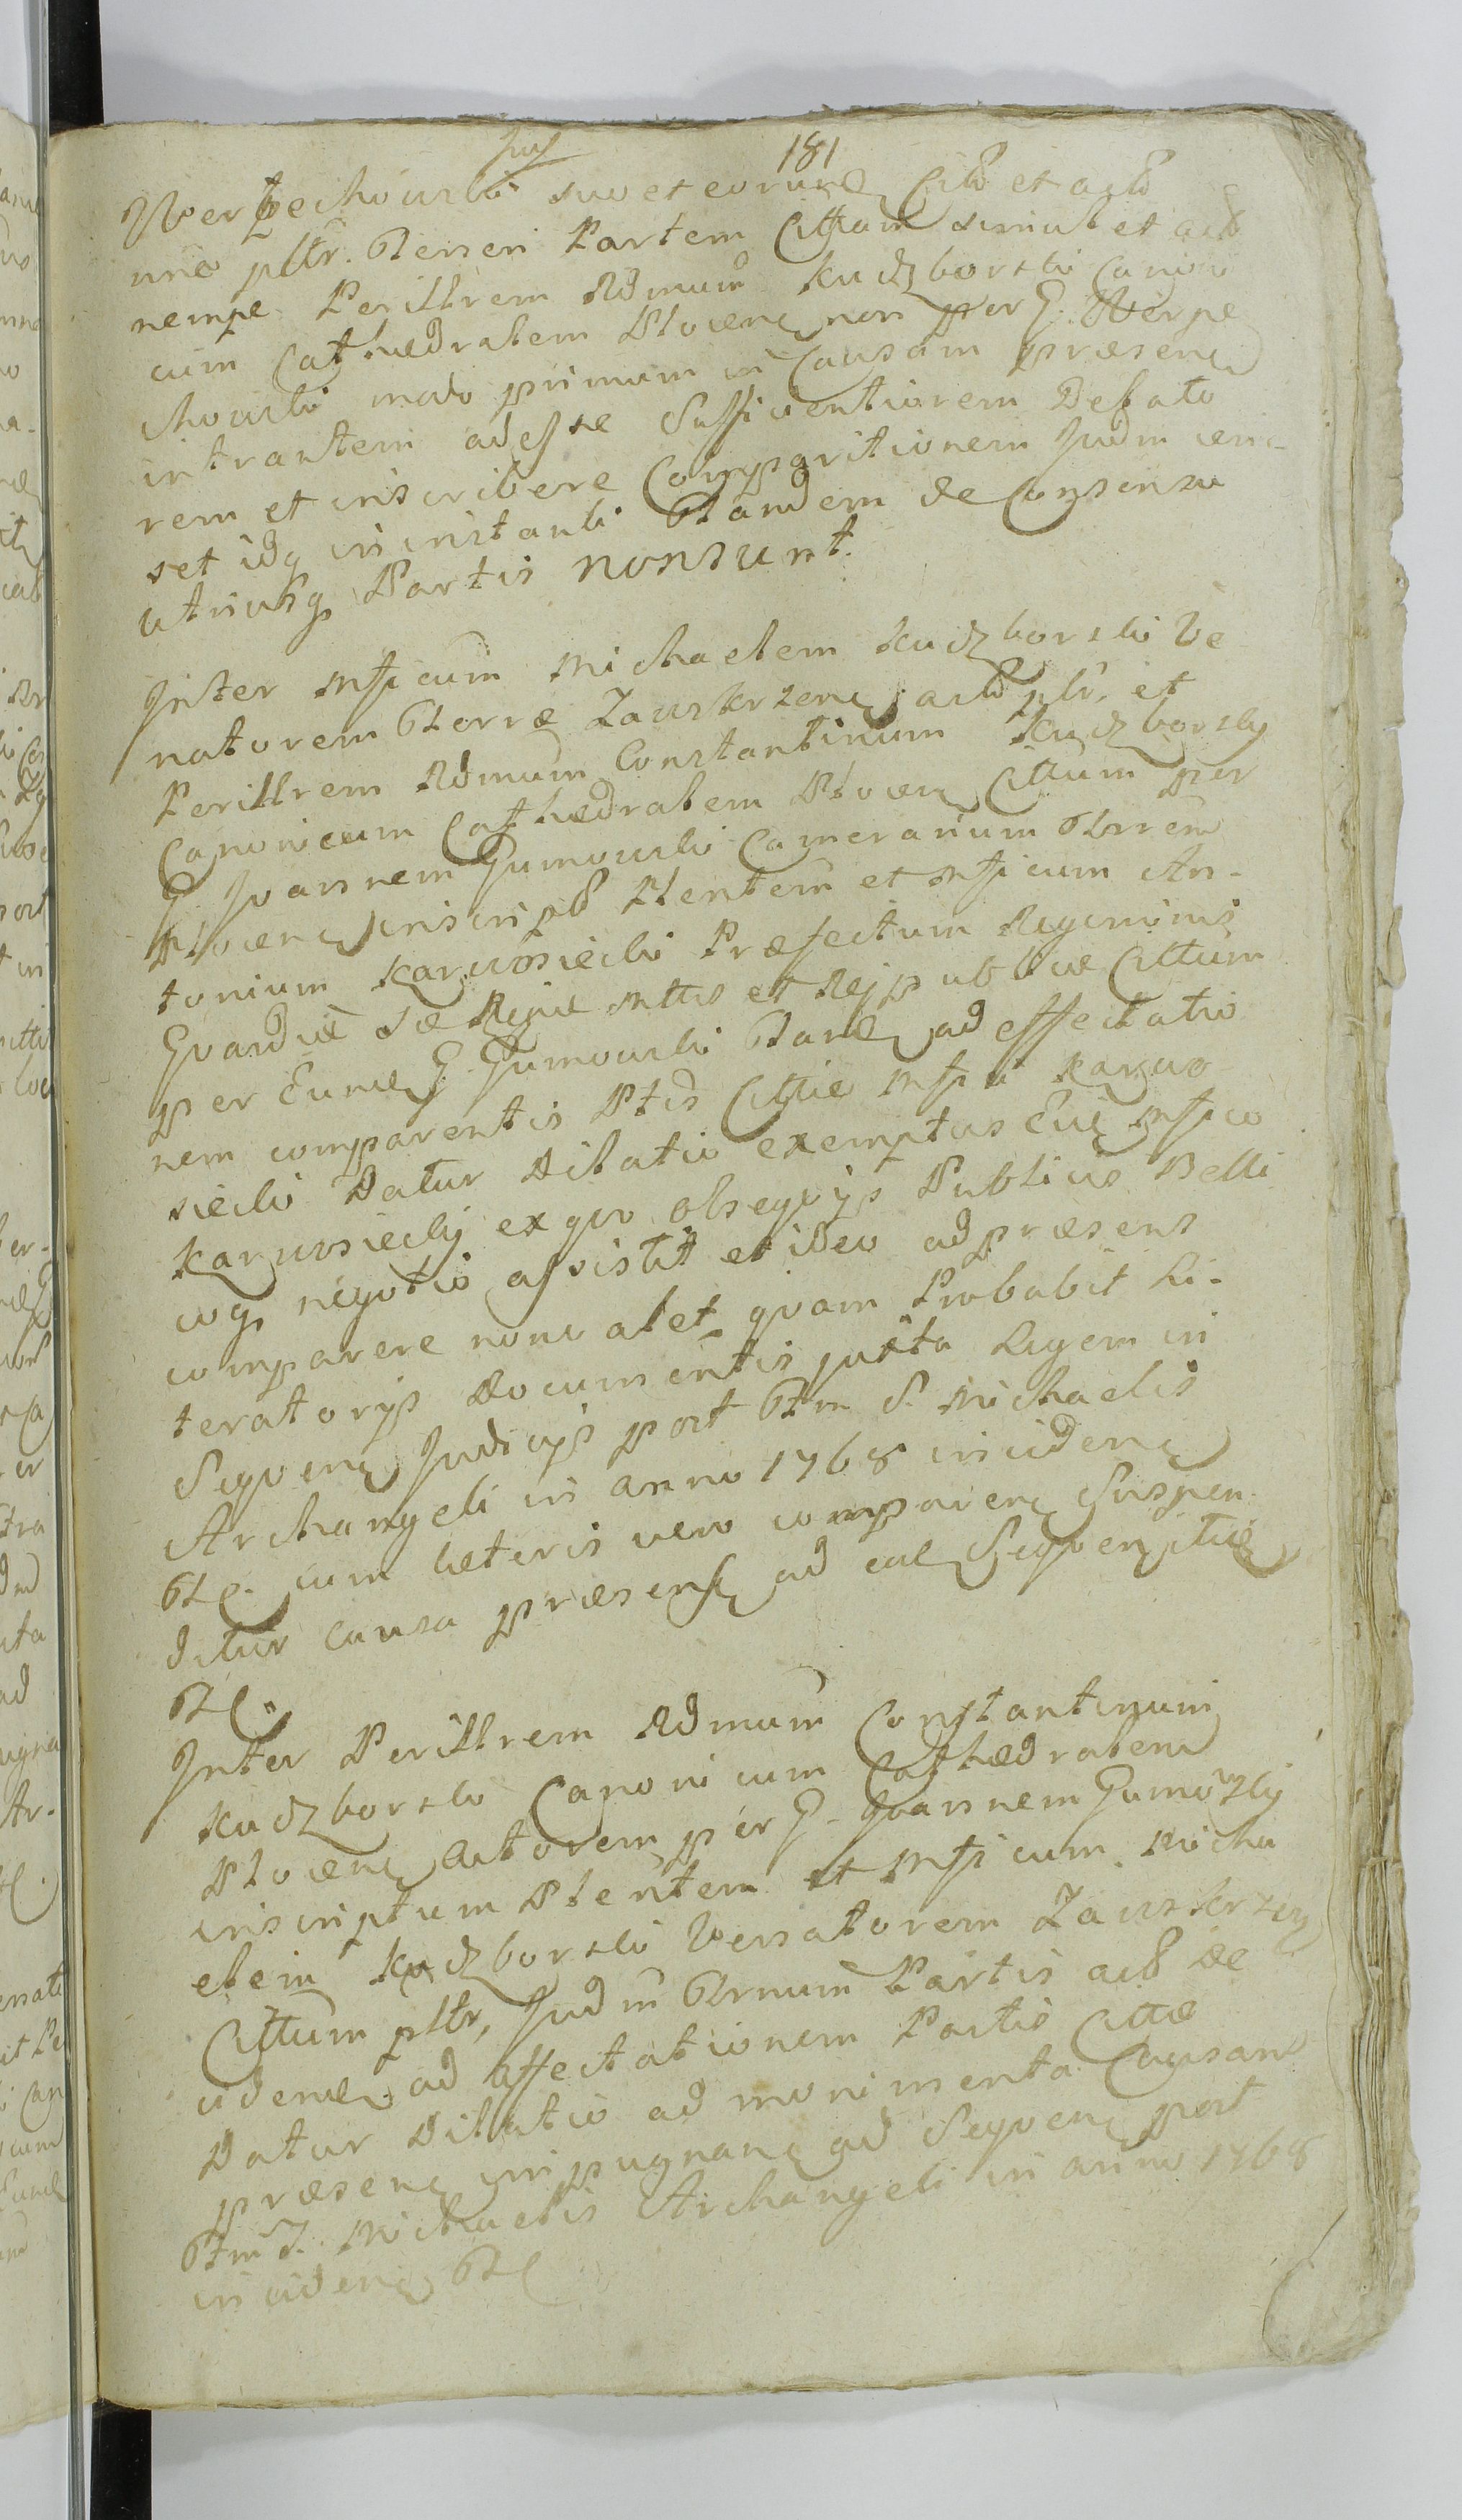 181
Wierzbechowski suo et eorum Citto et actō
uno pltr. Teneri Partem Cittam simul et actō
nempe Perillrem Rdmum Kudzborski Canoni
cum Cathædralem Plocens non per G. Wierzbe
chowski modo primum in Causam præsens
intrantem adesse Sufficientiorem Delato
rem et inscribere Comparitionem Judm cen-
set idq in instanti Tandem de Consensu
utriusq Partis nonsunt.
Inter Mficum Michaelem Kudzborski Ve
natorem Terræ Zawskrzens actō pltr. et
Perillrem Rdmum Constantinum Kudzborsky
Canonicum Cathædralem Plocens Cittum per
G. Joannem Gumowski Camerarium Trrem
Plocens inscriptō Plentem et Mficum An-
tonium Karwosiecki Præfectum Regiminis
Gvardiæ Sæ Regiæ Mttis et Rejpublicæ Cittum
per Eund G. Gumowski Tand ad affectatio
nem comparentis Ptis Cittæ Mfi Karwo
siecki Datur Dilatio exemptus Eius Mfico
Karwosiecky ex quo obsequijs Publicis Belli
coq negotio assistit et ideo ad præsens
comparere non valet quam Probabit Li-
teratorijs Documentis juxta Legem in
Seqvens Judicijs post Ftm S. Michaelis
Archangeli in anno 1768 incidens
Tle. cum cæteris vero comparens Suspen-
ditur causa præsens ad eas Seqventias
Tle.
Inter Perillrem Rdmum Constantinum
Kudzborski Canonicum Cathædralem
Plocens Actorem per G. Joannem Gumowsky
inscriptum Plentem et Mficum Micha
elem Kudzborski Venatorem Zawskrzens
Cittum pltr, Judm Trnum Partis actō de
cidens ad affectationem Partis Cittæ
Datur Dilatio ad munimenta Causam
præsens impugnans ad Seqvens post
Ftm S. Michaelis Archangeli in anno 1768
incidens Tle